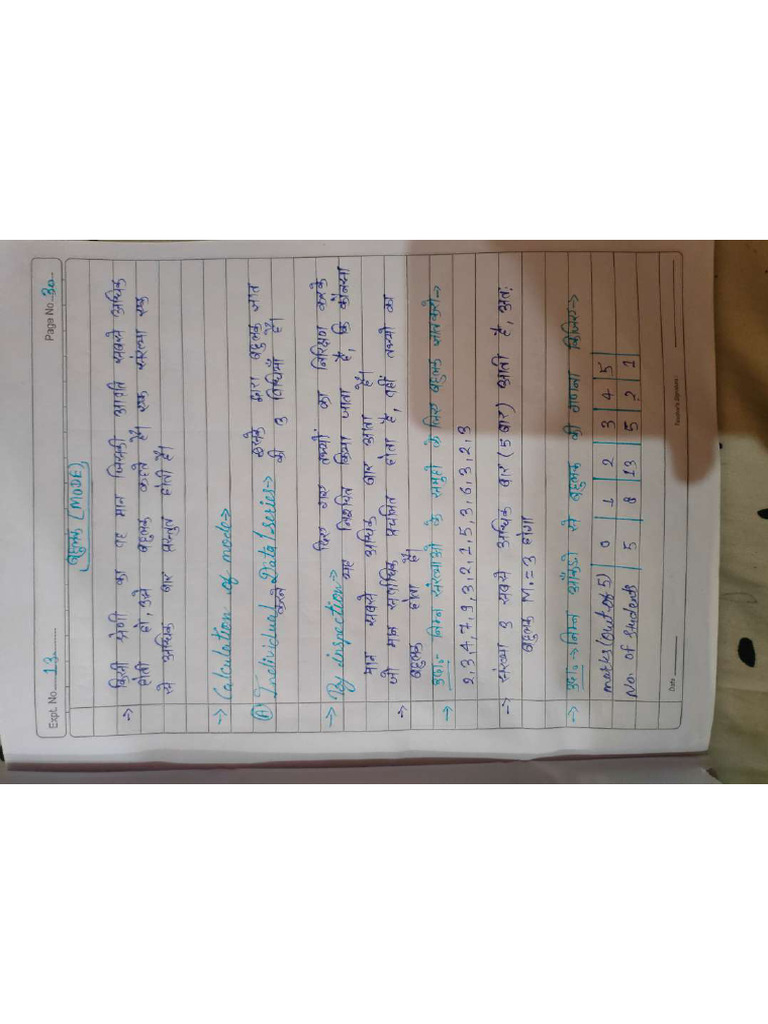 Expt. No. 13
Page No. 30
बहुलक (MODE)
→ किसी श्रेणी का वह मान जिसकी आवृति सबसे अधिक
होती हो, उसे बहुलक कहते है। एक संख्या एक
से अधिक बार प्रस्तुत होती है।
→ Calculation of mode→
(A) Individual Data/series→ इसके द्वारा बहुलक ज्ञात
करने की 3 विधियाँ है।
→ By inspection→ दिए गए तथ्यों का निरिक्षण करके
यह निश्चित किया जाता है, कि कौनसा
मान सबसे अधिक बार आता है।
→ जो मान सर्वाधिक प्रचलित होता है, वहीं तथ्यों का
बहुलक होता है।
→ उदा.- निम्न संख्याओ के समुहो के लिए बहुलक ज्ञात करो→
2,3,4,7,9,3,2,1,5,3,6,3,2,3
→ संख्या 3 सबसे अधिक बार (5 बार) आती है, अत:
बहुलक M.=3 होगा
→ उदा.→ निम्न आँकडो से बहुलक की गणना किजिए→
marks (out of 5) 0 1 2 3 4 5
No. of students 5 8 13 5 2 1
Date
Teacher's Signature :